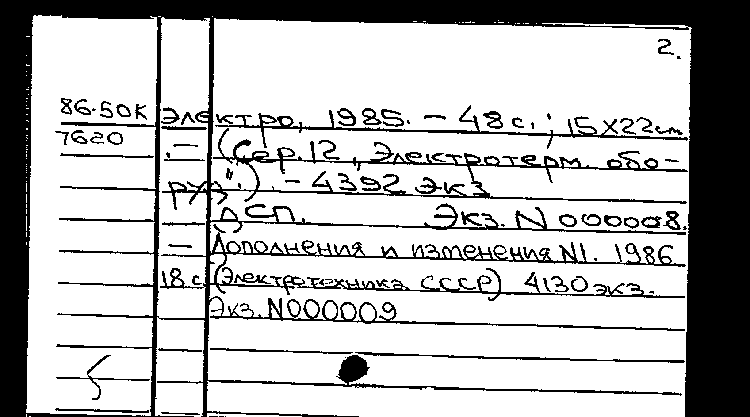 2.
86-50К Электро, 1985. – 48 с. ; 15X22см
7620 .– (Сер.12 „Электротерм. обо-
руд".). – 4392 экз
ДСП. Экз. N 000008.
– Дополнения и изменения N1. 1986
18 с. (Электротехника СССР) 4130 экз.
Экз. N000009